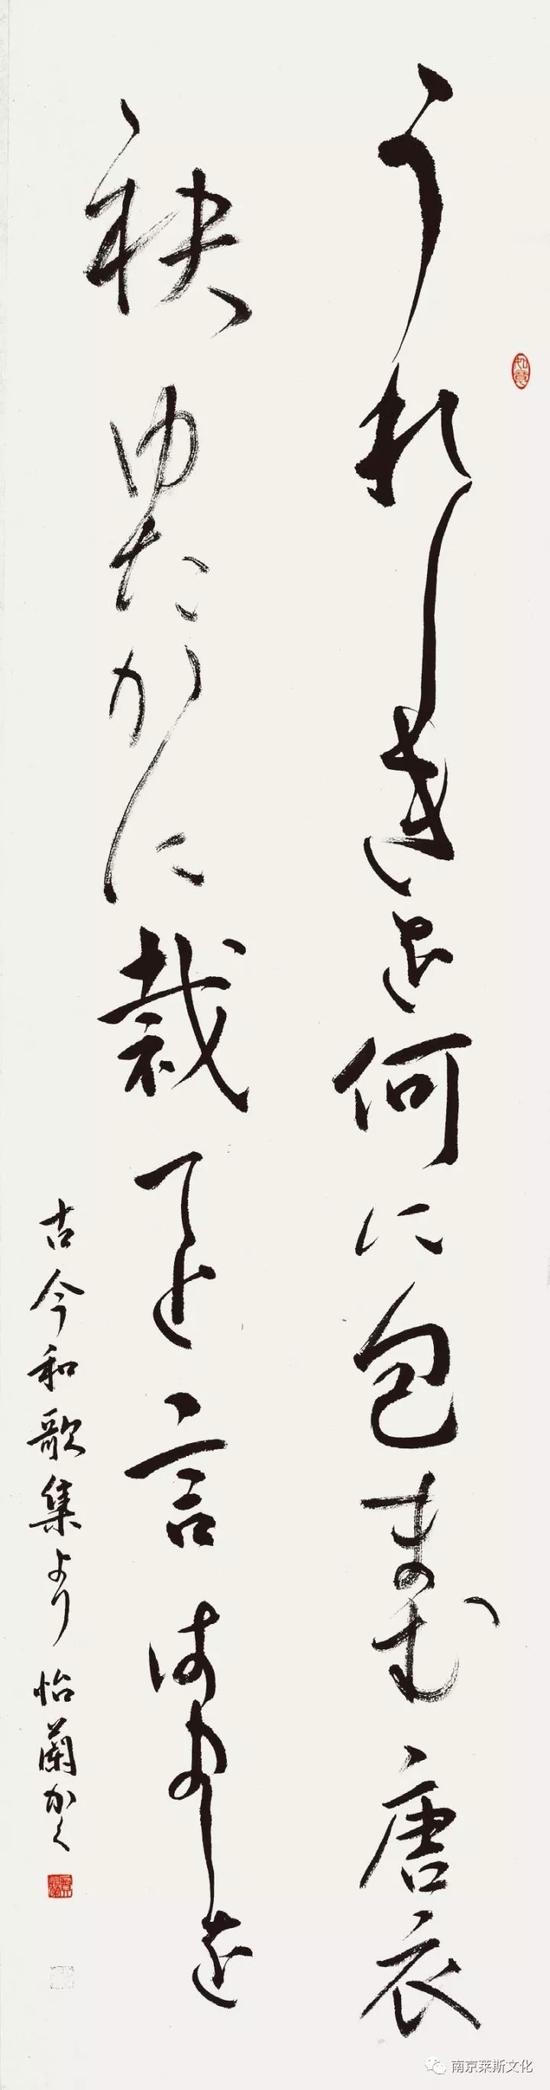 うれしきを何に包まむ唐衣
袂ゆたかに裁てと言はましを
古今和歌集より 怡蘭かく
南京莱斯文化